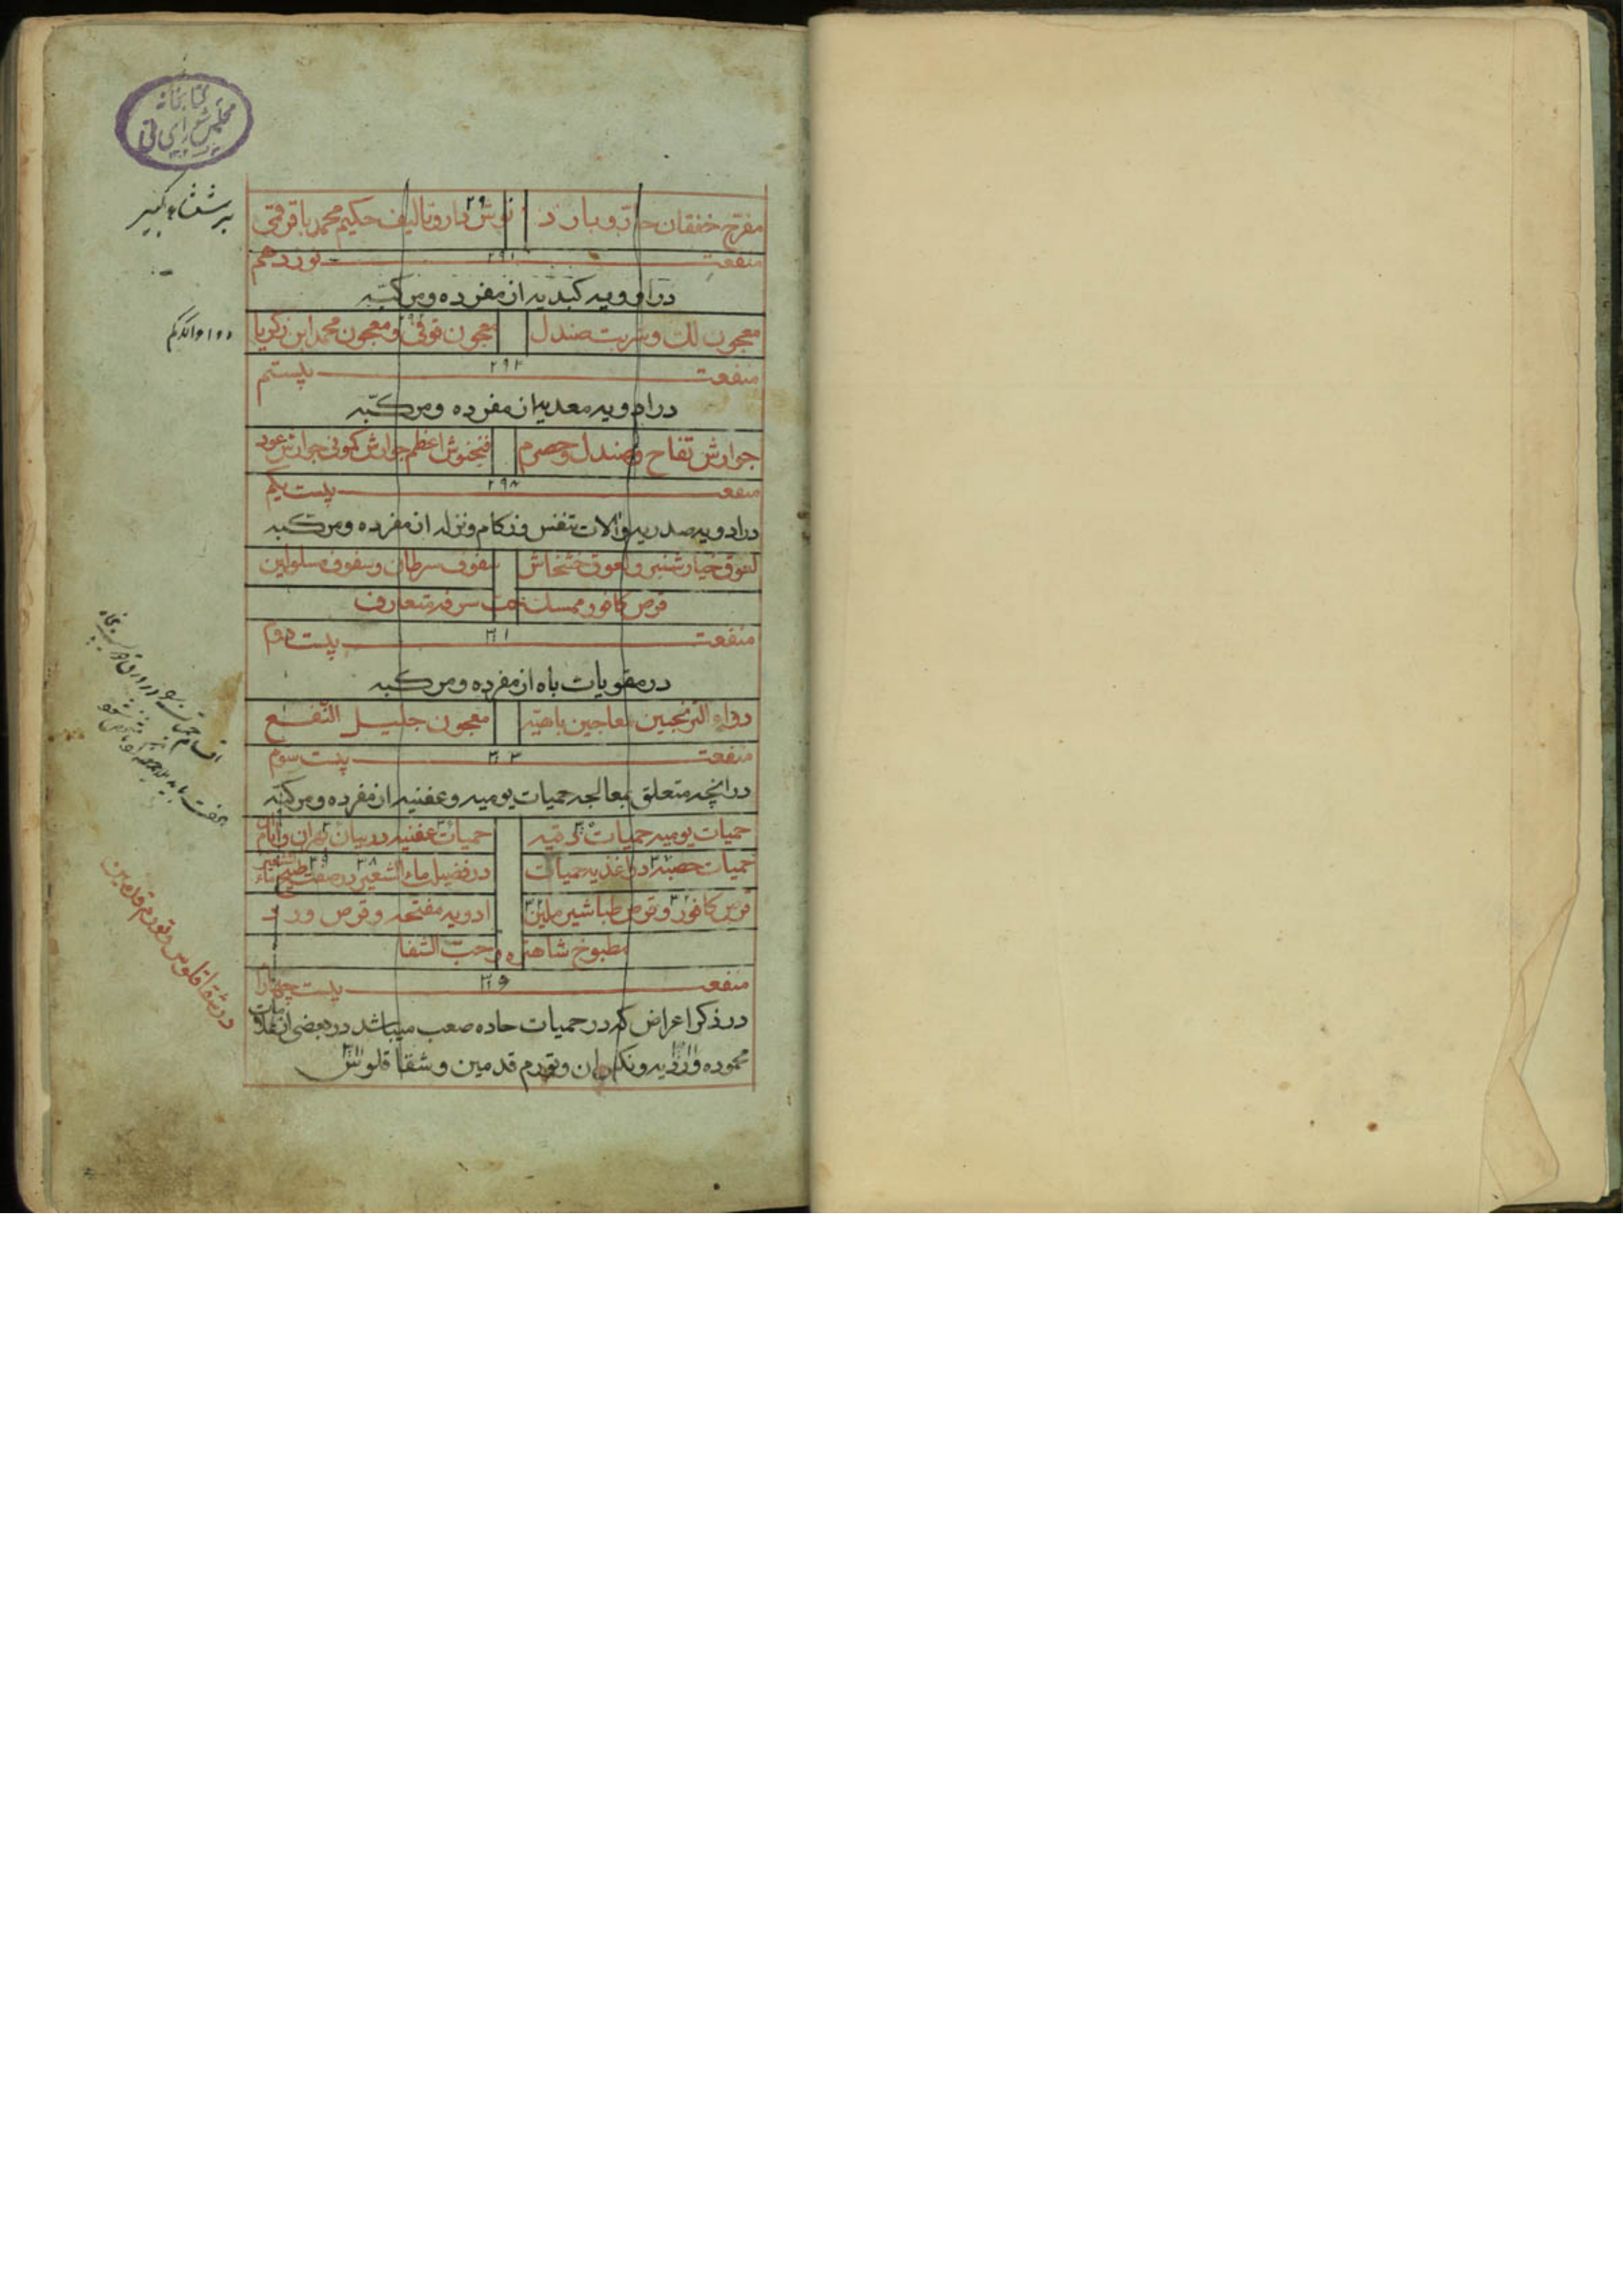 کتابخانه
مجلس شورای ملی
مفرّح خفقان حارّ و بارد نوش دارو تالیف حکیم محمد باقر قمی
۲۹
منفعت ۲۹۱ نوزدهم
در ادویه کبدیه از مفرده و مرکبّه
معجون لک و شربت صندل معجون فوقی و معجون محمد ابن زکریا
منفعت ۲۹۳ بیستم
در ادویه معدیه از مفرده و مرکبّه
جوارش تفاح و صندل و حصرم فنجنوش اعظم جوارش کمونی جوارش عود
منفعت ۲۹۸ بیست یکم
در ادویه صدریه و آلات تنفس و زکام و نزله از مفرده و مرکّبه
لعوق خیارشنبر و لعوق خشخاش سفوف سرطان و سفوف مسلولین
قرص کافور ممسک حب سرفه متعارف
منفعت ۳۰۱ بیست دوم
در مقویات باه از مفرده و مرکبه
دواء الترنجبین معاجین باهیّه معجون جلیل النّفع
منفعت ۳۰۳ بیست سوّم
در انچه متعلق بمعالجه حمیات یومیه و عفنیه از مفرده و مرکبّه
حمیات یومیه حمیات دقیّه حمیات عفنیه در بیان بحران و ایام
حمیات حصبه در اغذیه حمیات در فضیلت ماء الشعیر در صفت طبخ ماء الشعیر
قرص کافور و قرص طباشیر ملین ادویه مفتحه و قرص ورد
مطبوخ شاهتره و حبّ الشفا
منفعت بیست چهارم
در ذکر اعراض که در حمیات حاده صعب میباشد در بعضی از علامات
محموده و ردیه و تورم قدمین و شقاقلوس
در شقاقلوس و تورم قدمین